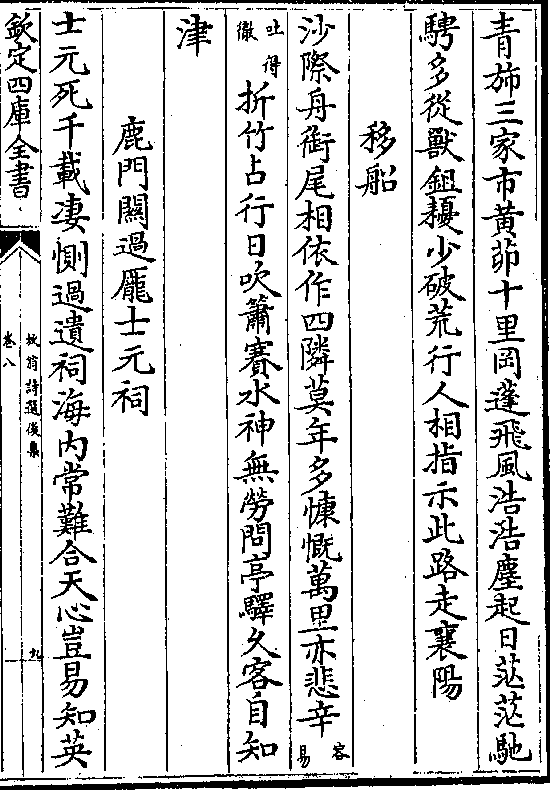 青斾三家市黃茆十里岡蓬飛風浩浩塵起日茫茫馳
騁多從獸鉏耰少破荒行人相指示此路走襄陽
移船
沙際舟銜尾相依作四隣莫年多慷慨萬里亦悲辛容易
吐得徹折竹占行日吹簫賽水神無勞問亭驛久客自知
津
鹿門關過龎士元祠
士元死千載凄惻過遺祠海内常難合天心豈易知英
欽定四庫全書
卷八
放翁詩選後集
九